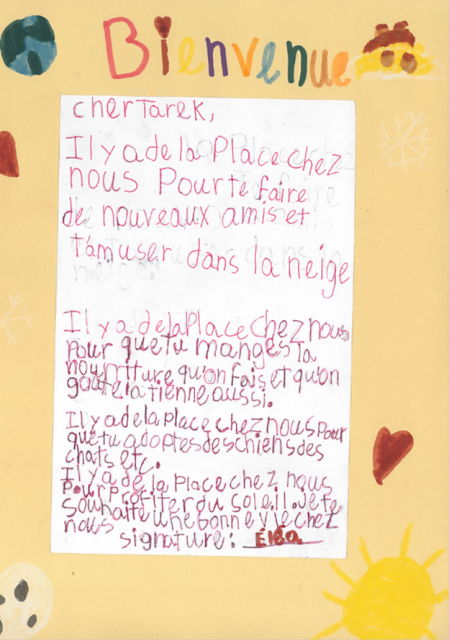 Bienvenue
cher Tarek,
Il y a de la Place chez
nous Pour te faire
de nouveaux amis et
t'amuser dans la neige
Il y a de la Place chez nous
Pour que tu manges ta
nourriture qu'on fais et qu'on
goûte la tienne aussi.
Il y a de la place chez nous Pour
que tu adoptes des chiens des
chats etc.
Il y a de la Place chez nous
Pour Profiter du soleil. Je te
souhaite une bonne vie chez
nous
signature: Éléa